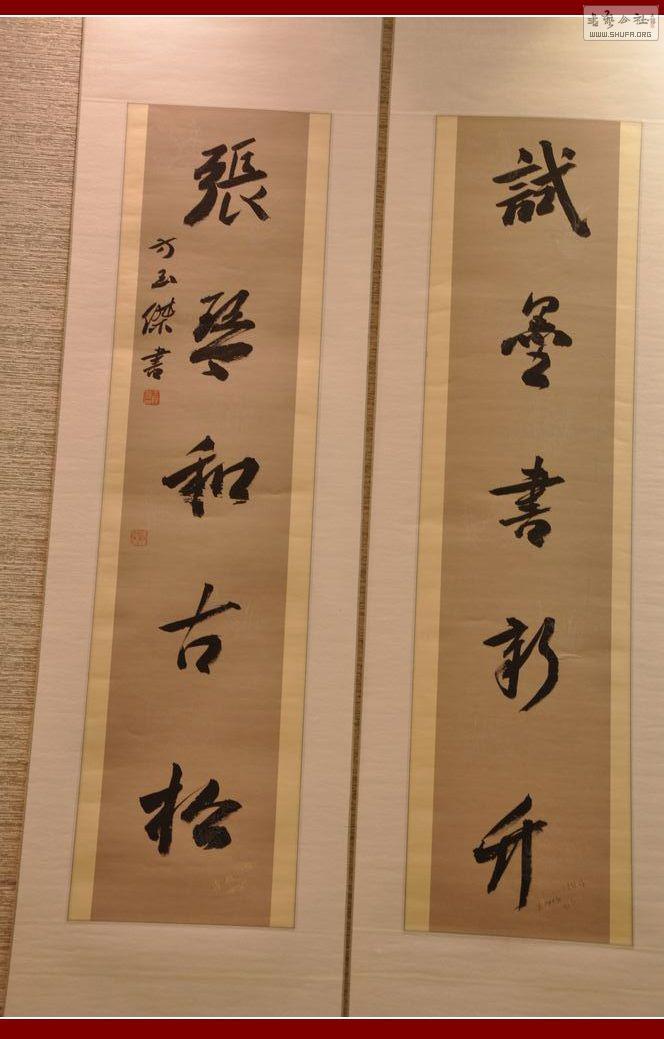 書藝公社
WWW.SHUFA.ORG
試墨書新竹
張琴和古松
方玉傑書